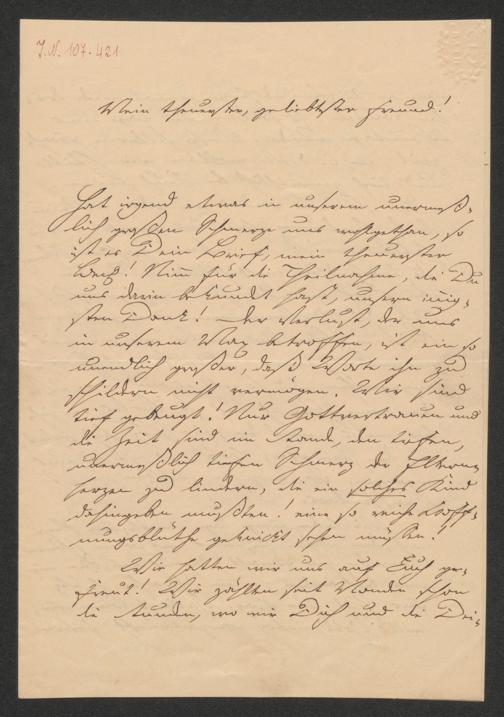 J.N. 107.421
Mein theuerster, geliebtester Freund!
Hat irgend etwas in unserem unermeß-
lich großen Schmerze uns wohlgethan, so
ist es Dein Brief, mein theuerster
Beck! Nim̅ für die Theilnahme, die Du
uns darin bekundet hast, unsern in̅ig-
sten Dank! Der Verlust, der uns
in unserem Max betroffen, ist ein so
unendlich großer, daß Worte ihn zu
schildern nicht vermögen. Wir sind
tief gebeugt! Nur Gottvertrauen und
die Zeit sind im Stande, den tiefen,
unermeßlich tiefen Schmerz der Eltern-
herzen zu lindern, die ein solches Kind
dahingeben mußten! eine so reiche Hoff-
nungsblüthe geknickt sehen müssen!
Wie hatten wir uns auf Euch ge-
freut! Wir zählten seit Monden schon
die Stunden, wo wir Dich und die Dei-